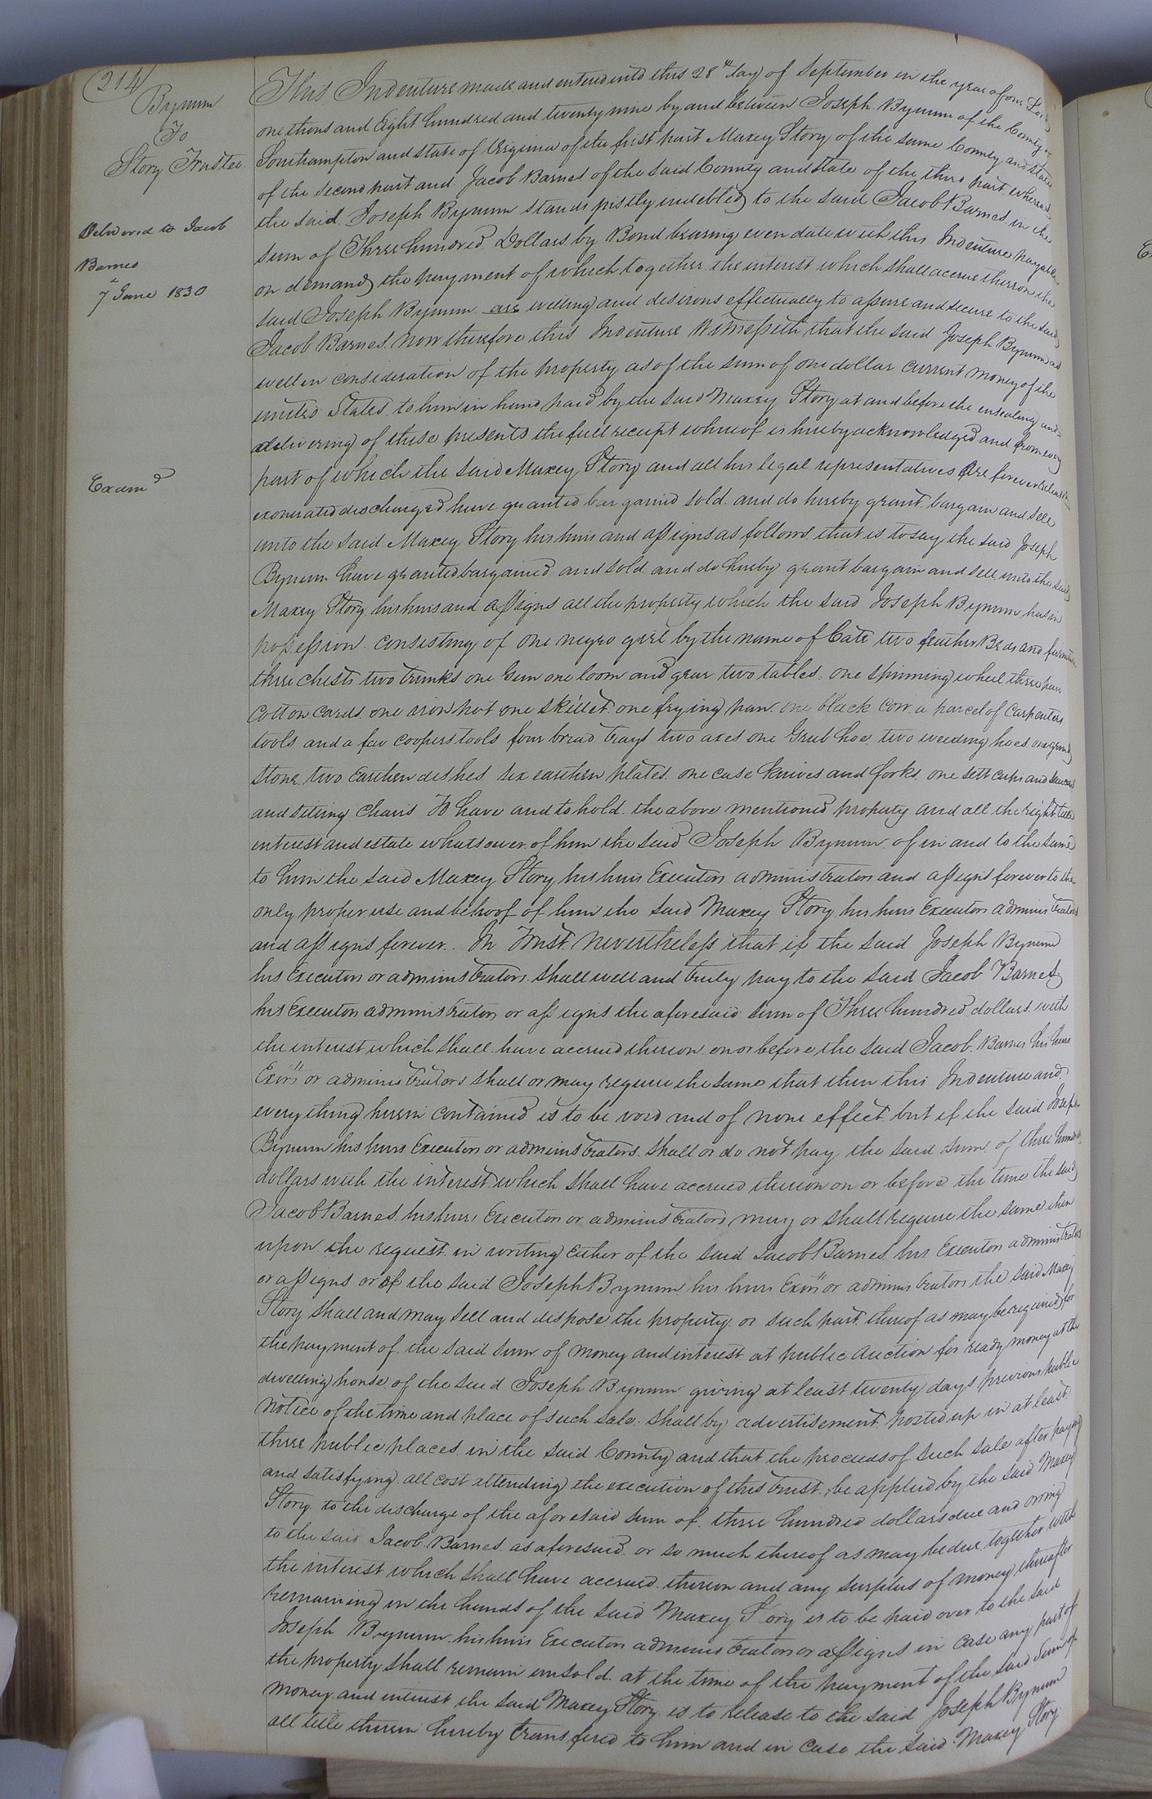 (214)
Bynum
To
Story Trustee
Delivered to Jacob
Barnes
7th June 1830
Examd
This Indenture made and entered into this 28th day of September in the year of our Lord
one thousand Eight hundred and twenty nine by and between Joseph Bynum of the County of
Southampton and state of Virginia of the first part Maxey Story of the same County and state
of the second part and Jacob Barnes of the said County and state of the third part whereas
the said Joseph Bynum stands justly indebted to the said Jacob Barnes in the
sum of Three hundred Dollars by Bond bearing even date with this Indenture payable
on demand the payment of which together the interest which shall accrue therron the
said Joseph Bynum are willing and desirous effectually to assure and secure to the said
Jacob Barnes. Now therefore this Indenture Witnesseth that the said Joseph Bynum as
well in consideration of the property as of the sum of one dollar current money of the
united States to him in hand paid by the said Maxey Story at and before the ensealing and
delivering of these presents the full receipt whereof is hereby acknowledged and from every
part of which the said Maxey Story and all his legal representatives are forever
exonerated discharged have granted bargained sold and do hereby grant bargain and sell
unto the said Maxey Story his heirs and assigns as follows that is to say the said Joseph
Bynum have granted bargained and sold and do hereby grant bargain and sell unto the said
Maxey Story his heirs and assigns all the property which the said Joseph Bynum has in
possession consisting of one negro girl by the name of Cate two feather Beds and furniture
three chests two trunks one Gun one loom and gear two tables one spinning wheel three pair
Cotton cards one iron pot one skillet one frying pan one black cow a parcel of Carpenters
tools and a few coopers tools four bread trays two axes one Grub hoe two weeding hoes one grind
stone two Earthen dishes six earthen plates one case knives and forks one sett cups and saucers
and setting chairs To have and to hold the above mentioned property and all the right title
interest and estate whatsoever of him the said Joseph Bynum of in and to the same
to him the said Maxey Story his heirs Executors administrators and assigns forever to the
only proper use and behoof of him the said Maxey Story his heirs Executors administrators
and assigns forever. In Trust Nevertheless that if the said Joseph Bynum
his Executors or administrators shall well and truly pay to the said Jacob Barnes
his Executors administrators or assigns the aforesaid sum of Three hundred dollars with
the interest which shall have accrued thereon on or before the said Jacob Barnes his heirs
Exors or administrators shall or may require the same that then this Indenture and
everything herein contained is to be void and of none effect but if the said Joseph
Bynum his heirs Executors or administrators shall or do not pay the said sum of three hundred
dollars with the interest which shall have accrued thereon on or before the time the said
Jacob Barnes his heirs Executors or administrators may or shall require the same then
upon the request in writing Either of the said Jacob Barnes his Executors administrators
or assigns or of the said Joseph Bynum his heirs Exors or administrators the said Maxey
Story shall and may sell and dispose the property or such part thereof as may be required for
the payment of the said sum of money and interest at public Auction for ready money at the
dwelling house of the said Joseph Bynum giving at least twenty days previous public
Notice of the time and place of such sale shall by advertisement posted up in at least
three public places in the said County and that the proceeds of such sale after paying
and satisfying all cost attending the execution of this trust, be applied by the said Maxey
Story to the discharge of the aforesaid sum of three hundred dollars due and owing
to the said Jacob Barnes as aforesaid or so much thereof as may be due together with
the interest which shall have accrued thereon and any surplus of money thereafter
remaining in the hands of the said Maxey Story is to be paid over to the said
Joseph Bynum his heirs Executors administrators or assigns in case any part of
the property shall remain unsold at the time of the payment of the said sum of
money and interest the said Maxey Story is to release to the said Joseph Bynum
all title therein hereby transfered to him and in case the said Maxey Story